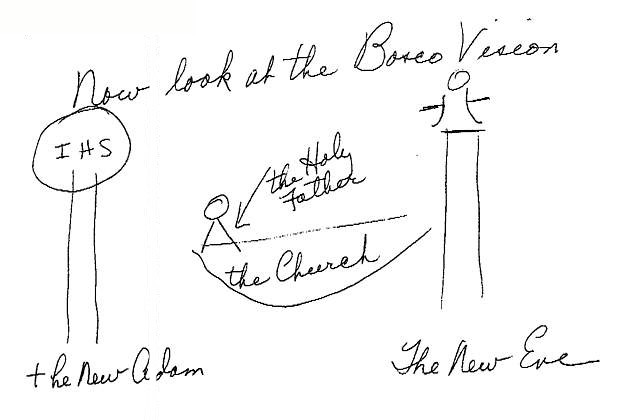 Now look at the Bosco Vision
IHS
the Holy
Father
the Church
the New Adam
The New Eve